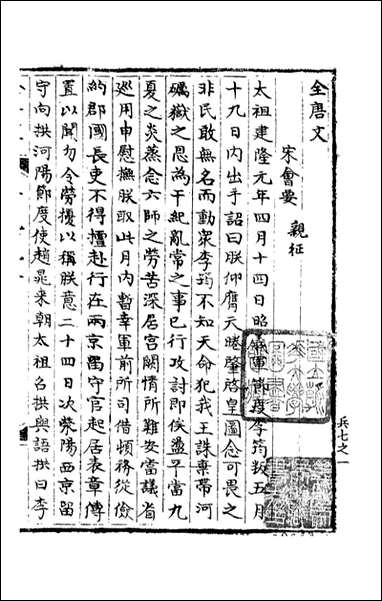 全唐文
宋會要
親征
太祖建隆元年四月十四日昭義軍節度李筠叛五月
十九日内出手詔曰朕仰膺天睠肇啓皇圖念可畏之
非民敢無名而動衆李筠不知天命犯我王誅棄帶河
礪嶽之恩為干紀亂常之事已行攻討即俟盪平當九
夏之炎蒸念六師之勞苦深居宫闕情所難安當議省
巡用申慰撫朕取此月内暫幸軍前所司借頓務從儉
約郡國長吏不得擅赴行在兩京留守官起居表章傳
置以聞勿令勞擾以稱朕意二十四日次滎陽西京留
守向拱河陽節度使趙晁來朝太祖召拱與語拱曰李
兵七之一